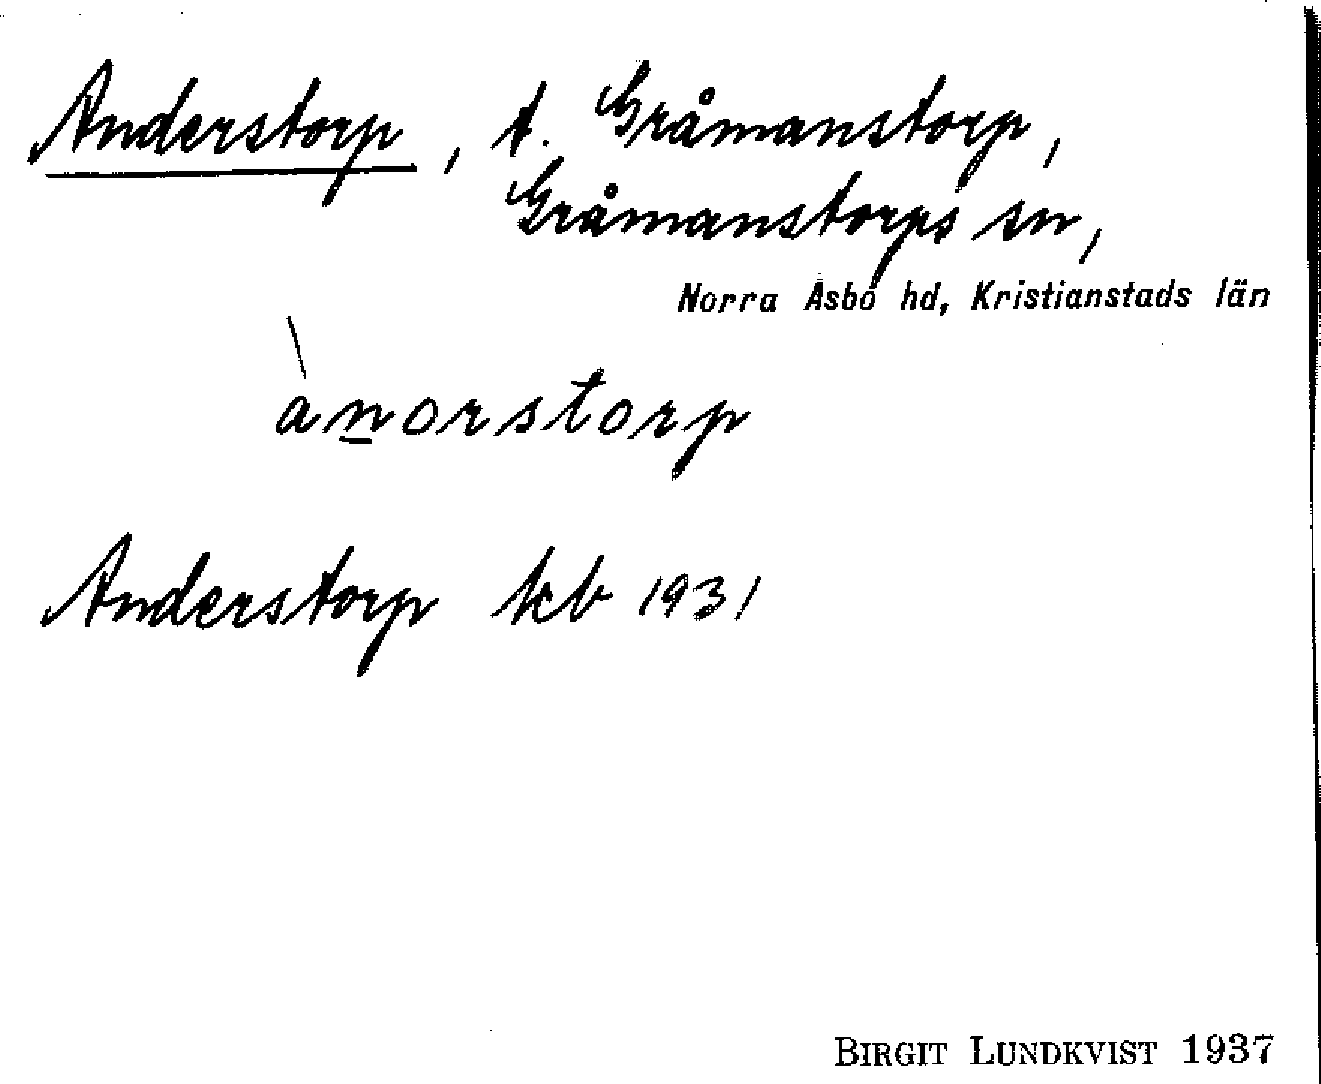 Anderstorp, t. Gråmanstorp,
Gråmanstorps sn,
Norra Åsbo hd, Kristianstads län
ànorstorp
Anderstorp kb 1931
BIRGIT LUNDKVIST 1937